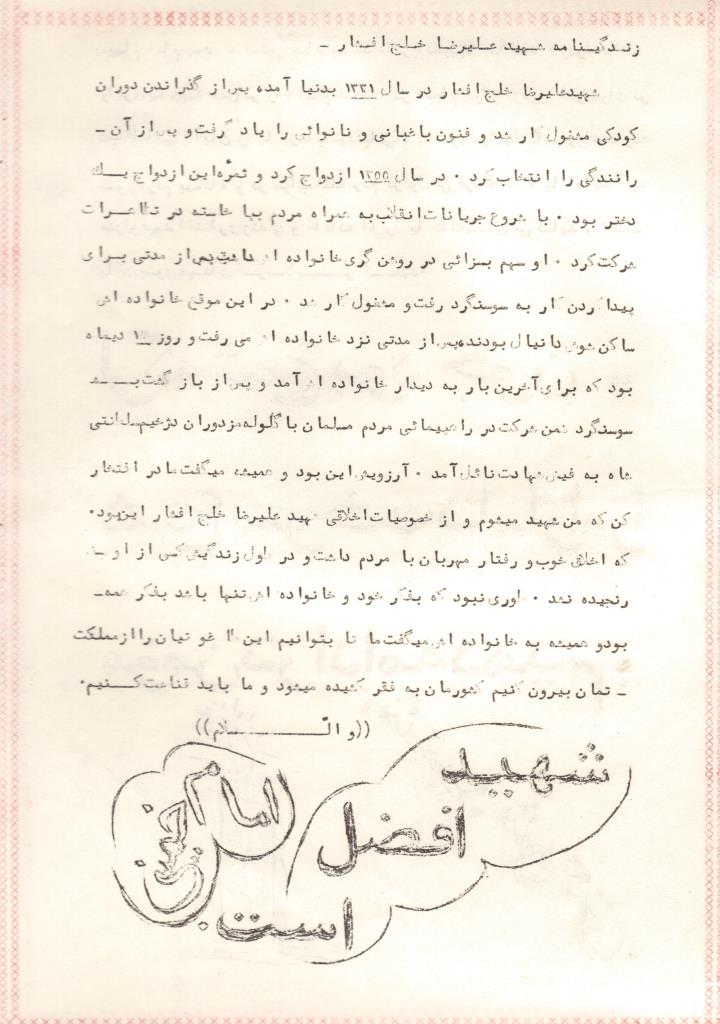 زندگینامه شهید علیرضا خلج افشار -
شهیدعلیرضا خلج افشار در سال ۱۳۳۱ بدنیا آمد، پس از گذراندن دوران
کودکی مشغول کار شد و فنون باغبانی و نانوائی را یاد گرفت و پس از آن -
رانندگی را انتخاب کرد ۰ در سال ۱۳۵۵ ازدواج کرد و ثمرهٔ این ازدواج یک
دختر بود ۰ با شروع جریانات انقلاب به همراه مردم بپا خاسته در تظاهرات
شرکت کرد ۰ او سهم بسزائی در روشن گری خانواده اش داشت پس از مدتی برای
پیدا کردن کار به سوسنگرد رفت و مشغول کار شد ۰ در این موقع خانواده اش
ساکن شوش دانیال بودند، پس از مدتی نزد خانواده اش می رفت و روز دیماه
بود که برای آخرین بار به دیدار خانواده اش آمد و پس از باز گشت به
سوسنگرد ضمن شرکت در راهپیمائی مردم مسلمان با گلوله مزدوران دژخیم سلطنتی
شاه به فیض شهادت نائل آمد ۰ آرزویش این بود و همیشه میگفت ما در افتخار
کن که من شهید میشوم و از خصوصیات اخلاقی شهید علیرضا خلج افشار این بود۰
که اخلاق خوب و رفتار مهربان با مردم داشت و در طول زندگیش کسی از او
رنجیده نشد ۰ طوری نبود که بفکر خود و خانواده اش تنها باشد بفکر همه -
بود و همیشه به خانواده اش میگفت ما تا بتوانیم این طا غو تیان را از مملکت
- تمان بیرون کنیم کشورمان به فقر کشیده میشود و ما باید قناعت کنیم۰
((و السلام))
شهید
افضل
است
امام خمینی